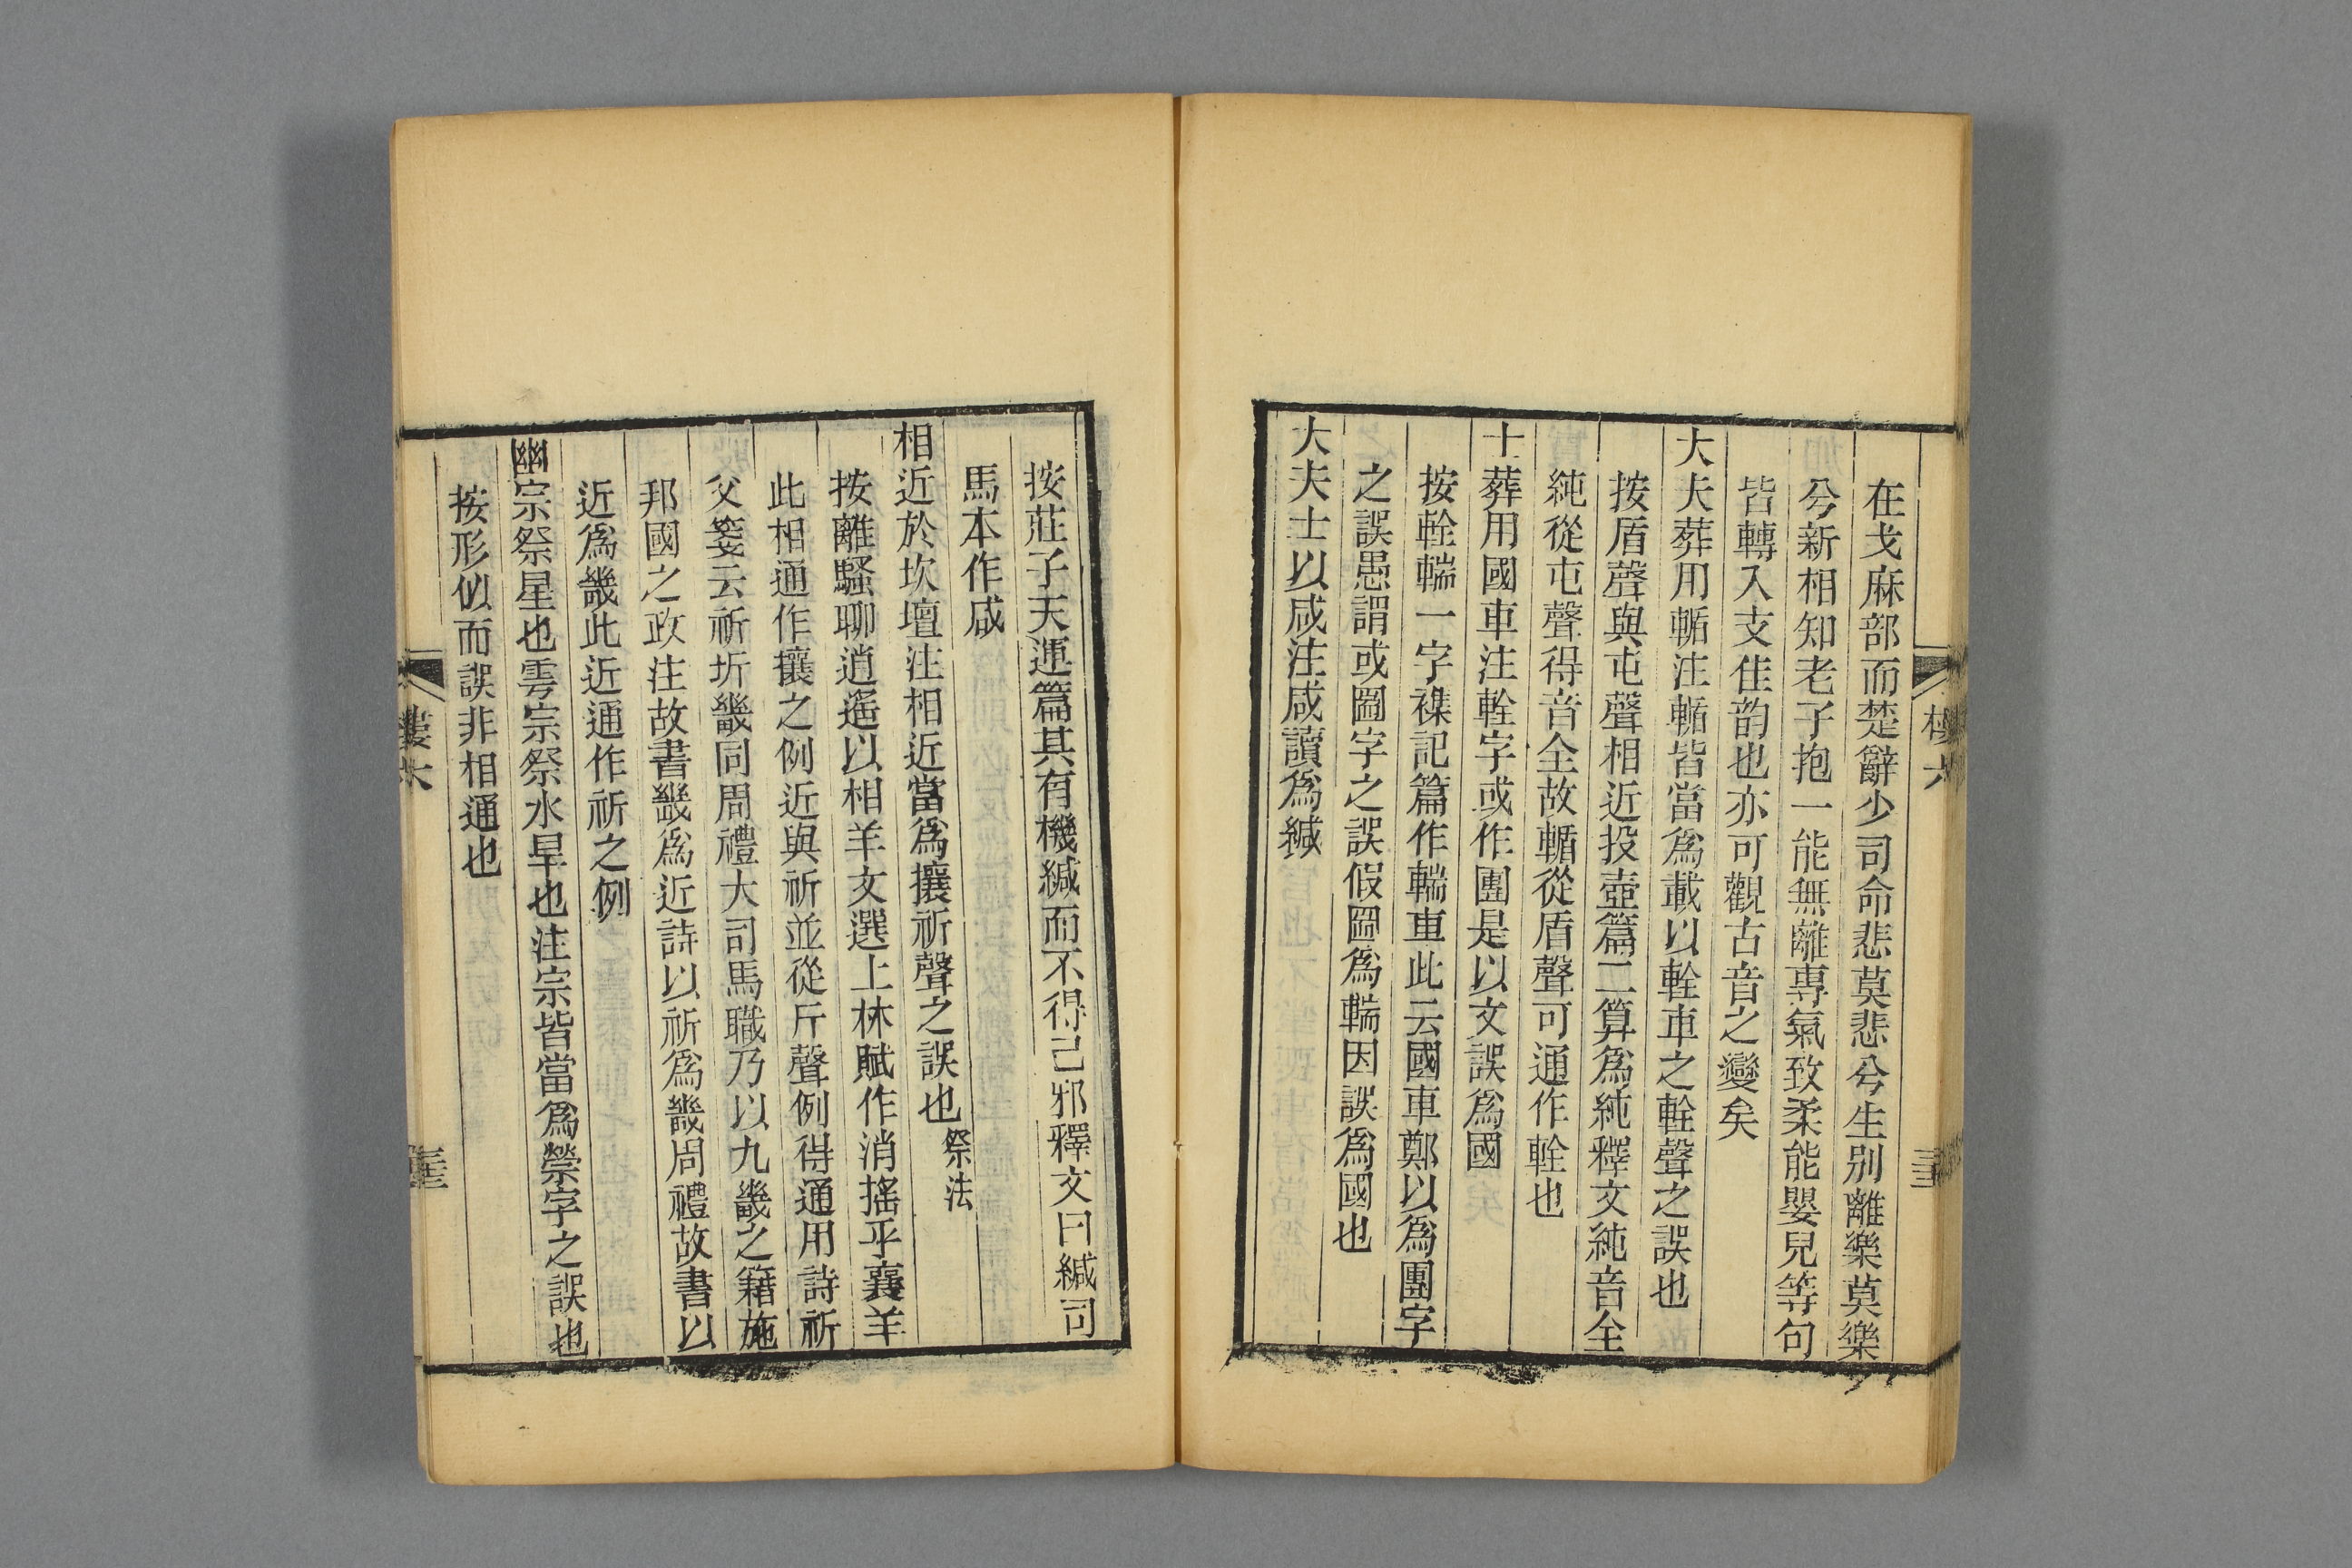 在戈麻部而楚辭少司命悲莫悲兮生别離樂莫樂
兮新相知老子抱一能無離專氣致柔能嬰兒等句
皆轉入支佳韵也亦可觀古音之變矣
大夫葬用輴注輴皆當爲載以輇車之輇聲之誤也
按盾聲與屯聲相近投壺篇二算爲純釋文純音全
純從屯聲得音全故輴從盾聲可通作輇也
士葬用國車注輇字或作團是以文誤爲國
按輇輲一字襍記篇作輲車此云國車鄭以爲團字
之誤愚謂或圖字之誤假圖爲輲因誤爲國也
大夫士以咸注咸讀爲緘
按莊子天運篇其有機緘而不得已邪釋文曰緘司
馬本作咸
相近於坎壇注相近當爲攘祈聲之誤也祭法
按離騷聊逍遙以相羊文選上林賦作消搖乎襄羊
此相通作攘之例近與祈並從斤聲例得通用詩祈
父箋云祈圻畿同周禮大司馬職乃以九畿之籍施
邦國之政注故書畿爲近詩以祈爲畿周禮故書以
近爲畿此近通作祈之例
幽宗祭星也雩宗祭水旱也注宗皆當爲禜字之誤也
按形似而誤非相通也